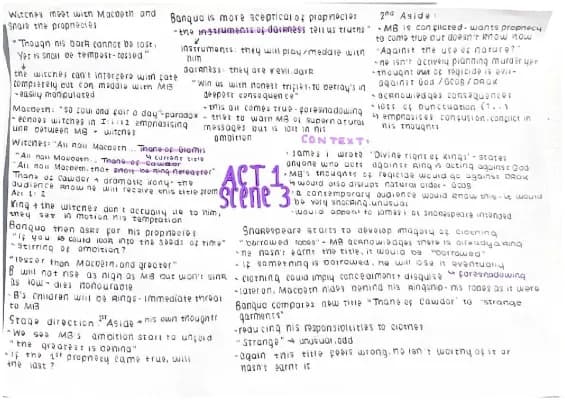 Witches meet with Macbeth and
share the prophecies
"Though his bark cannot be lost,
Yet it shall be tempest-tossed"
the witches can't interfere with fate
completely but can meddle with MB
-easily manipulated
Macbeth: "so foul and fair a day"-paradox
-echoes witches in I:i:12 emphasising
link between MB + witches
Witches: "All hail Macbeth... Thane of Glamis
↳ current title
"All hail Macbeth... Thane of Cawdor"
"All hail Macbeth, that shalt be king hereafter"
Thane of Cawdor → dramatic irony - the
audience know he will receive this title from
Act 1:2
King → the witches don't actually lie to him,
they set in motion his temptation
Banquo then asks for his prophecies
"If you could look into the seeds of time"
-stirring of ambition?
"lesser than Macbeth, and greater"
B will not rise as high as MB but won't sink
as low - dies honourable
-B's children will be kings - immediate threat
to MB
Stage direction: 1st Aside → his own thoughts
-We see MB's ambition start to unfold
"the greatest is behind"
-If the 1st prophecy came true, will
the last?
Banquo is more sceptical of prophecies
-"the instruments of darkness tell us truths"
instruments: they will play/meddle with
him
darkness: they are evil, dark
"Win us with honest trifles, to betray's in
deepest consequence"
-this all comes true - foreshadowing
-tries to warn MB of supernatural
messages but is lost in his
ambition
ACT 1
Scene 3
2nd Aside:
-MB is conflicted - wants prophecy
to come true but doesn't know how
"Against the use of nature?"
-he isn't actively planning murder yet
-thought of regicide is evil -
against God/GCOB/DROK
-acknowledges consequences
-lots of punctuation (?,.)
↳ emphasises confusion, conflict in
his thoughts
CONTEXT:
-James I wrote 'Divine right of Kings' - states
anyone who acts against King is acting against God
-MB's thoughts of regicide would go against DROK
↳ would also disrupt natural order - GCOB
-a contemporary audience would know this - it would
be very shocking, unusual
-would appeal to James I as Shakespeare intended
Shakespeare starts to develop imagery of clothing
-"borrowed robes" - MB acknowledges there is already a king
-he hasn't earnt the title, it would be "borrowed"
-If something is borrowed, he will lose it eventually
-clothing could imply concealment + disguise ↳ foreshadowing
-later on, Macbeth hides behind his kingship - his robes as it were
Banquo compares new title "Thane of Cawdor" to "strange
garments"
-reducing his responsibilities to clothes
-"Strange" → unusual, odd
-again this title feels wrong, he isn't worthy of it or
hasn't earnt it